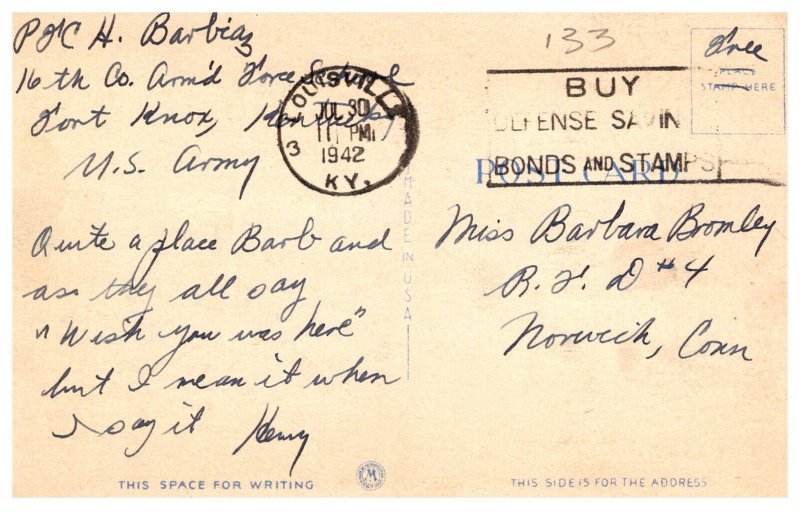 PFC H. Barbiaz
16th Co. Arm'd Force School
Fort Knox, Kentucky
U.S. Army
Quite a place Barb and
as they all say
"Wish you was here"
but I mean it when
I say it Henry
THIS SPACE FOR WRITING
LOUISVILLE
JUL 30
11 PM
1942
KY.
3
MADE IN USA
133
BUY
DEFENSE SAVIN
BONDS AND STAMPS
Free
PLACE
STAMP HERE
POST CARD
Miss Barbara Bromley
R. F. D #4
Norwich, Conn
THIS SIDE IS FOR THE ADDRESS